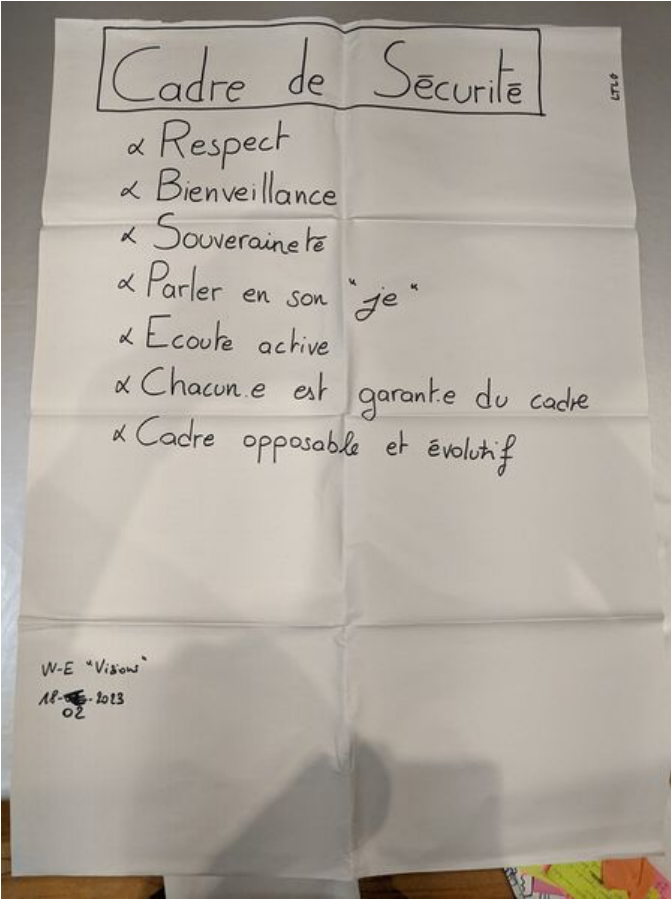 Cadre de Sécurité
LTLO
α Respect
α Bienveillance
α Souveraineté
α Parler en son "je"
α Ecoute active
α Chacun.e est garant.e du cadre
α Cadre opposable et évolutif
W-E "Visions"
18- -2023
02